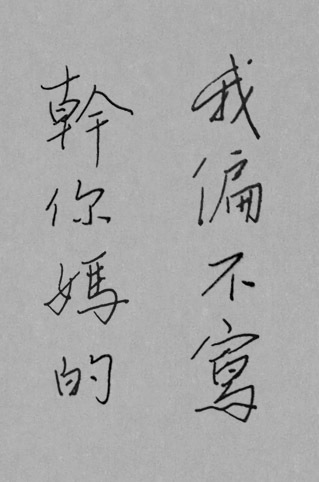 我偏不寫
幹你媽的